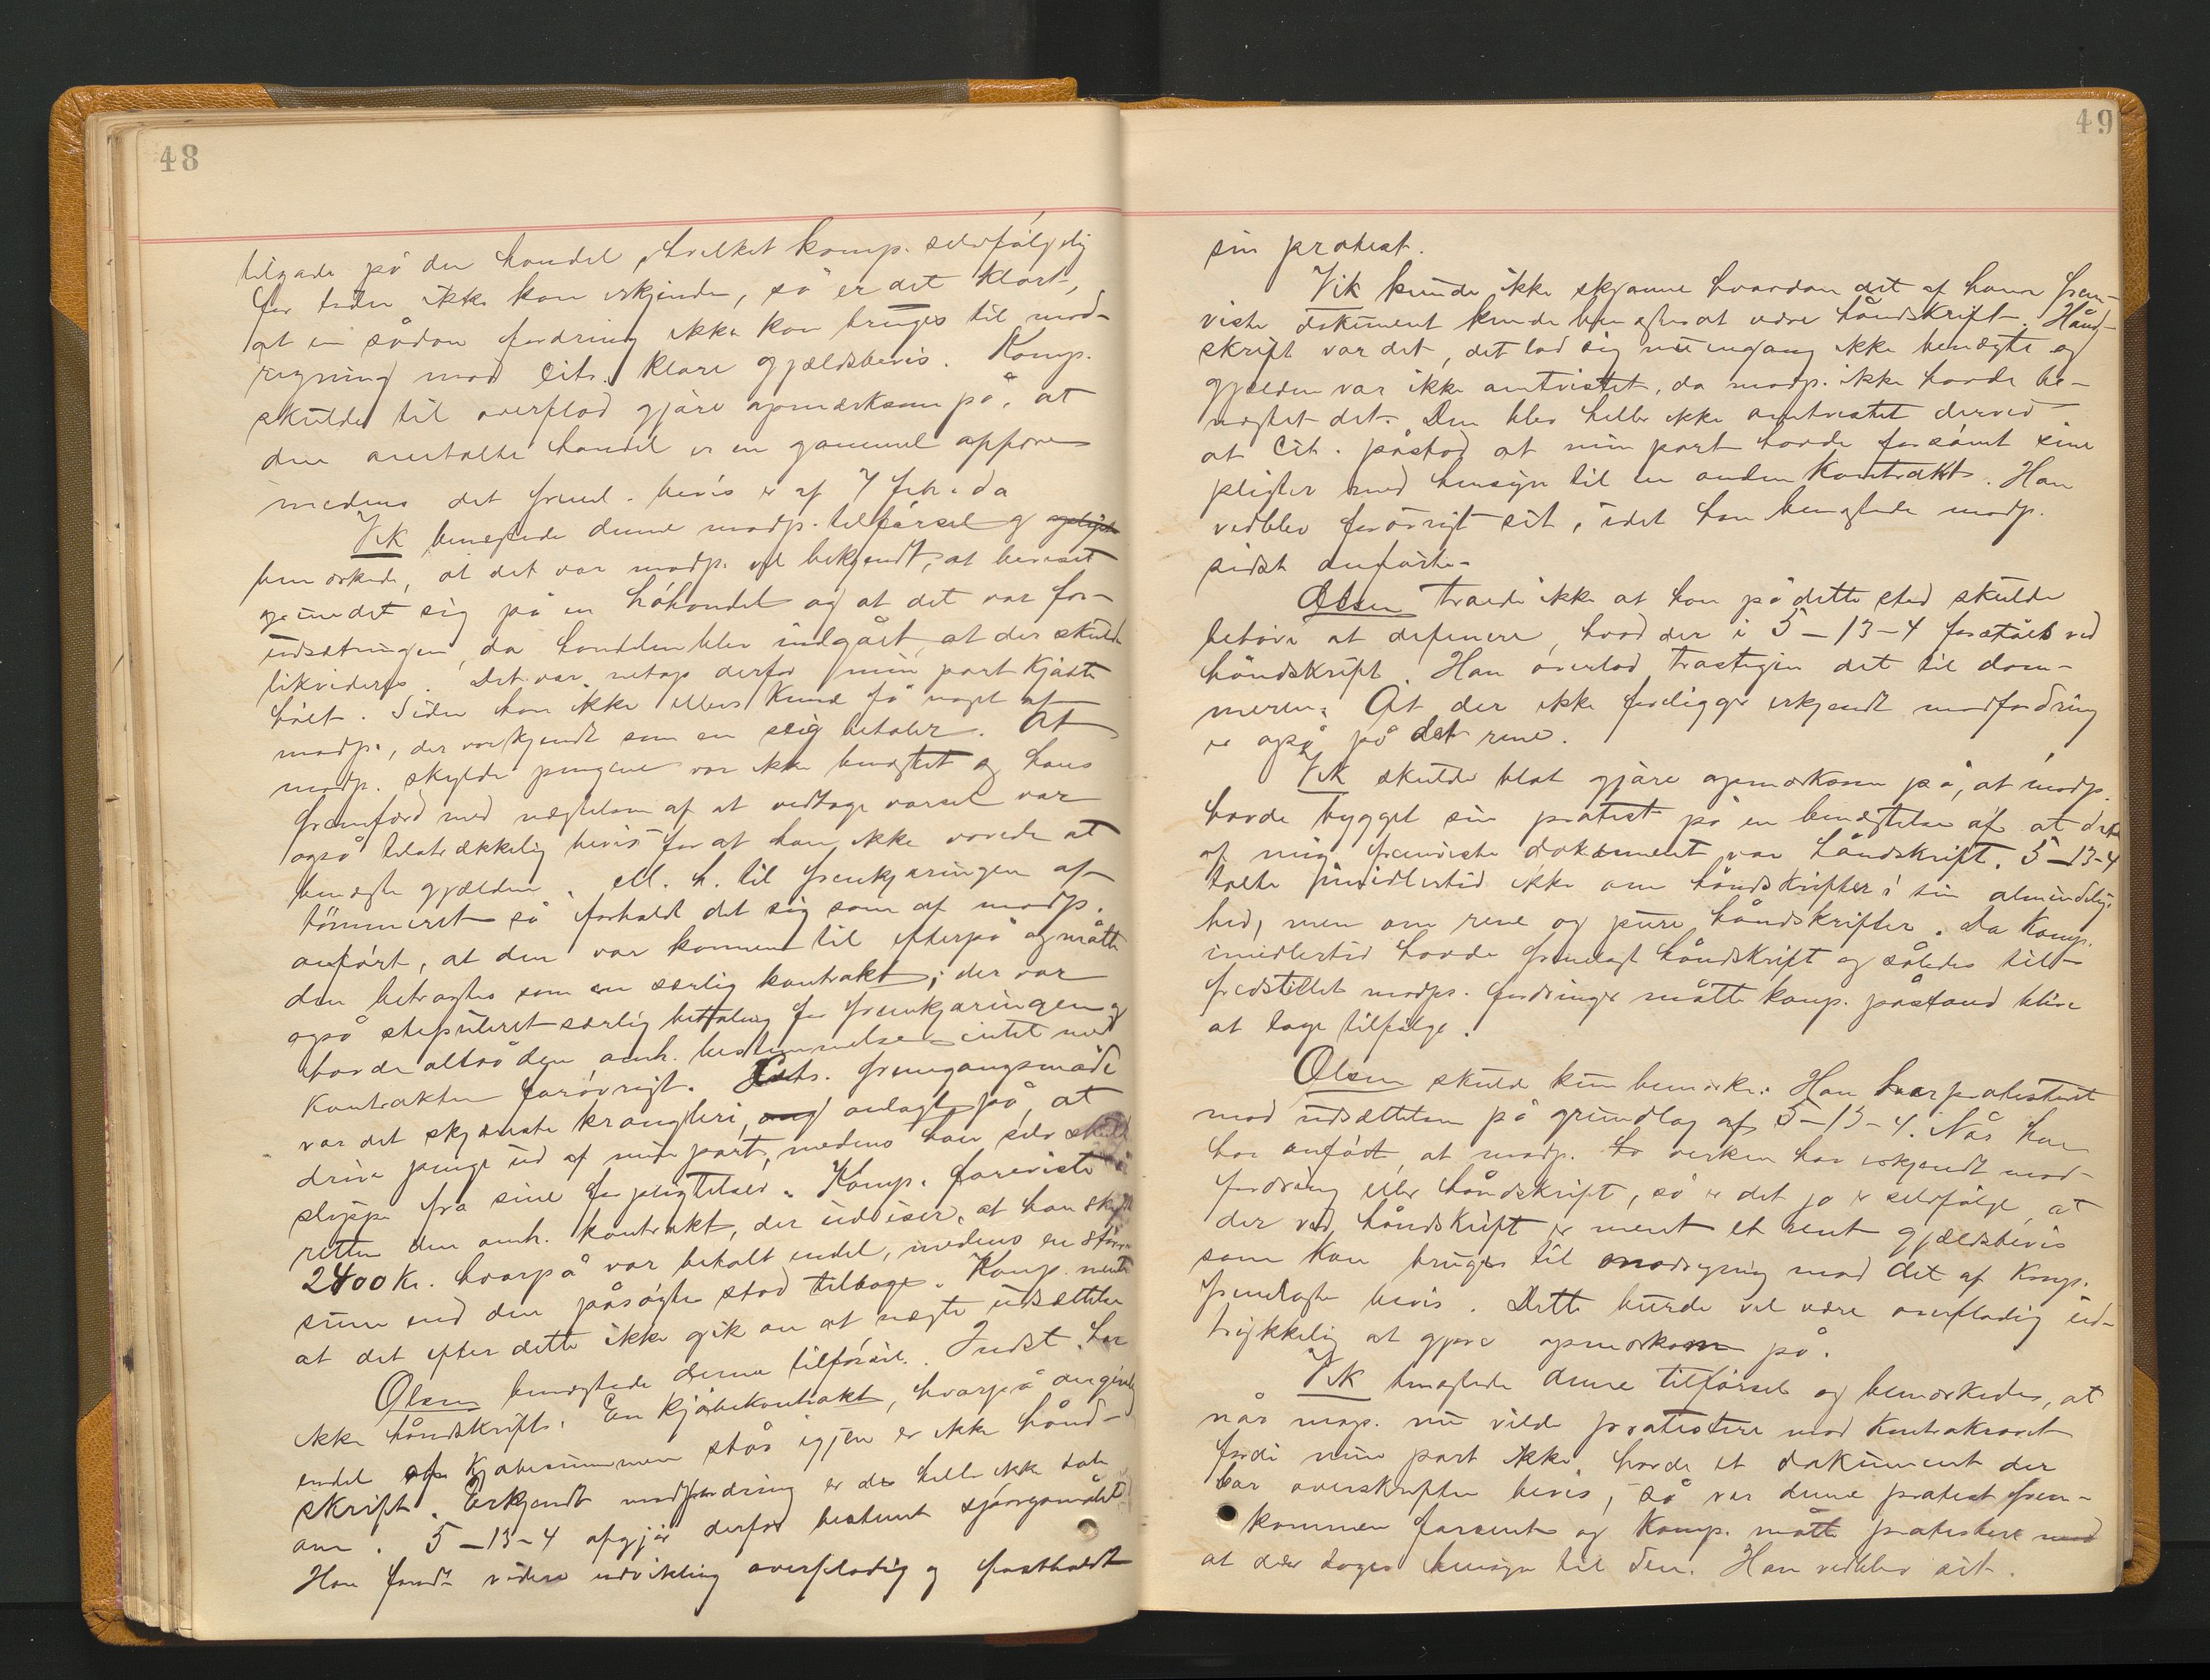 48
tilgode på den handel, hvilket komp. selvfølgelig
for tiden ikke kan erkjende, så er det klart,
at en sådan fordring ikke kan bruges til mod-
regning mod Cits. klare gjældsbevis. Komp.
skulde til overflod gjøre opmærksom på, at
den omtalte handel er en gammel
medens det freml. bevis er af 7 febr. da
Vik benegtede denne modp. tilførsel og
bemærkede, at det var modp. vel bekjendt, at beviset
grundet sig på en høhandel og at det var for-
udsætningen, da handelen blev indgået, at der skulde
likvideres. Det var netop derfor min part kjøbte
høet. Siden han ikke ellers kunde få noget af
modp., der var kjendt som en seig betaler. At
modp. skyldte pengene var ikke benegtet og hans
fremfærd med negtelsen af at vedtage varsel var
også tilstrækkelig bevis for at han ikke vovede at
benegte gjælden. M. h. til fremkjøringen af
tømmeret så forholdt det sig som af modp.
anført, at den var kommen til efterpå og måtte
den betragtes som en særlig kontrakt; der var
også stipuleret særlig betaling for fremkjøringen og
havde altså den omh. bestemmelse intet med
kontrakten forøvrigt. Cits. fremgangsmåde
var det skjæreste krangleri, anlagt på, at
drive penge ud af min part, medens han selv skulde
slippe fra sine forpligtelser. Komp. foreviste i
retten den omh. kontrakt, der udviser, at han skyldte
2400 Kr. hvorpå var betalt endel, medens en større
sum end den påsøgte stod tilbage. Komp. mente
at det efter dette ikke gik an at negte udsættelse
Olsen benegtede denne tilførsel. Indst. har
ikke håndskrift. En kjøbekontrakt, hvorpå angivelig
endel af kjøbesummen står igjen er ikke hånd-
skrift. Erkjendt modfordring er der heller ikke tale
om. 5-13-4 afgjør derfor bestemt spørgsmålet
Han fandt videre udvikling overflødig og fastholdt
49
sin protest.
Vik kunde ikke skjønne hvordan det af ham frem-
viste dokument kunde benegtes at være håndskrift. Hånd-
skrift var det, det lod sig nu engang ikke benegte og
gjælden var ikke omtvistet, da modp. ikke havde be-
negtet det. Den blev heller ikke omtvistet derved
at Cit. påstod at min part havde forsømt sine
pligter med hensyn til en anden kontrakt. Han
vedblev forøvrigt sit, idet han benegtede modp.
sidst anførte.
Olsen troede ikke at han på dette sted skulde
behøve at definere, hvad der i 5-13-4 forståes ved
håndskrift. Han overlod trøstigen det til dom-
meren. At der ikke foreligger erkjendt modfordring
er også på det rene.
Vik skulde blot gjøre opmærksom på, at modp.
havde bygget sin protest på en benegtelse af at det
af mig fremviste dokument var håndskrift. 5-13-4
talte imidlertid ikke om håndskrifter i sin almindelig-
hed, men om rene og pure håndskrifter. Da Komp.
imidlertid havde fremlagt håndskrift og således til-
fredstillet modps. fordringer måtte komp. påstand blive
at tage tilfølge.
Olsen skulde kun bemærke: Han har protesteret
mod udsættelsen på grundlag af 5-13-4. Når han
har anført, at modp. verken har erkjendt mod-
fordring eller håndskrift, så er det jo selvfølge, at
der ved håndskrift er ment et rent gjældsbevis
som kan bruges til modregning mod det af Komp.
fremlagte bevis. Dette burde vel være overflødig ud-
trykkelig at gjøre opmærksom på.
Vik benegtede denne tilførsel og bemærkede, at
når modp. nu vilde protestere mod Kontrakravet
fordi min part ikke havde et dokument der
bar overskriften bevis, så var denne protest frem-
kommen forsent og Komp. måtte protestere mod
at der toges hensyn til den. Han vedblev sit.